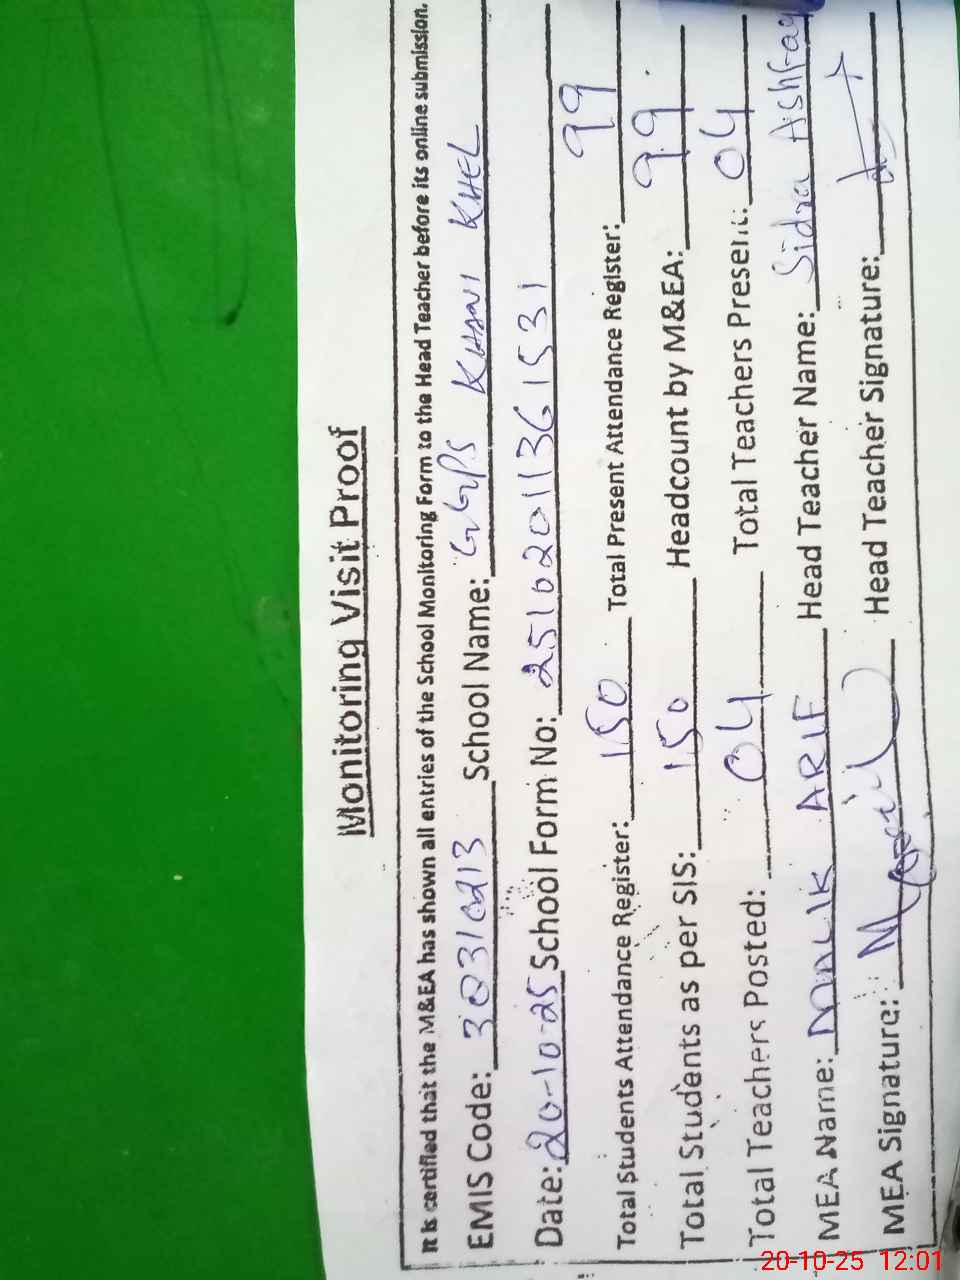 Monitoring Visit Proof
It is certified that the M&EA has shown all entries of the School Monitoring Form to the Head Teacher before its online submission.
EMIS Code: 38310213 School Name: GGPS KHANI KHEL
Date: 20-10-25 School Form No: 25102011361531
Total Students Attendance Register: 150 Total Present Attendance Register: 99
Total Students as per SIS: 150 Headcount by M&EA: 99
Total Teachers Posted: 04 Total Teachers Present: 04
MEA Name: MALIK ARIF Head Teacher Name: Sidra Ashfaq
MEA Signature: Head Teacher Signature:
20-10-25 12:01